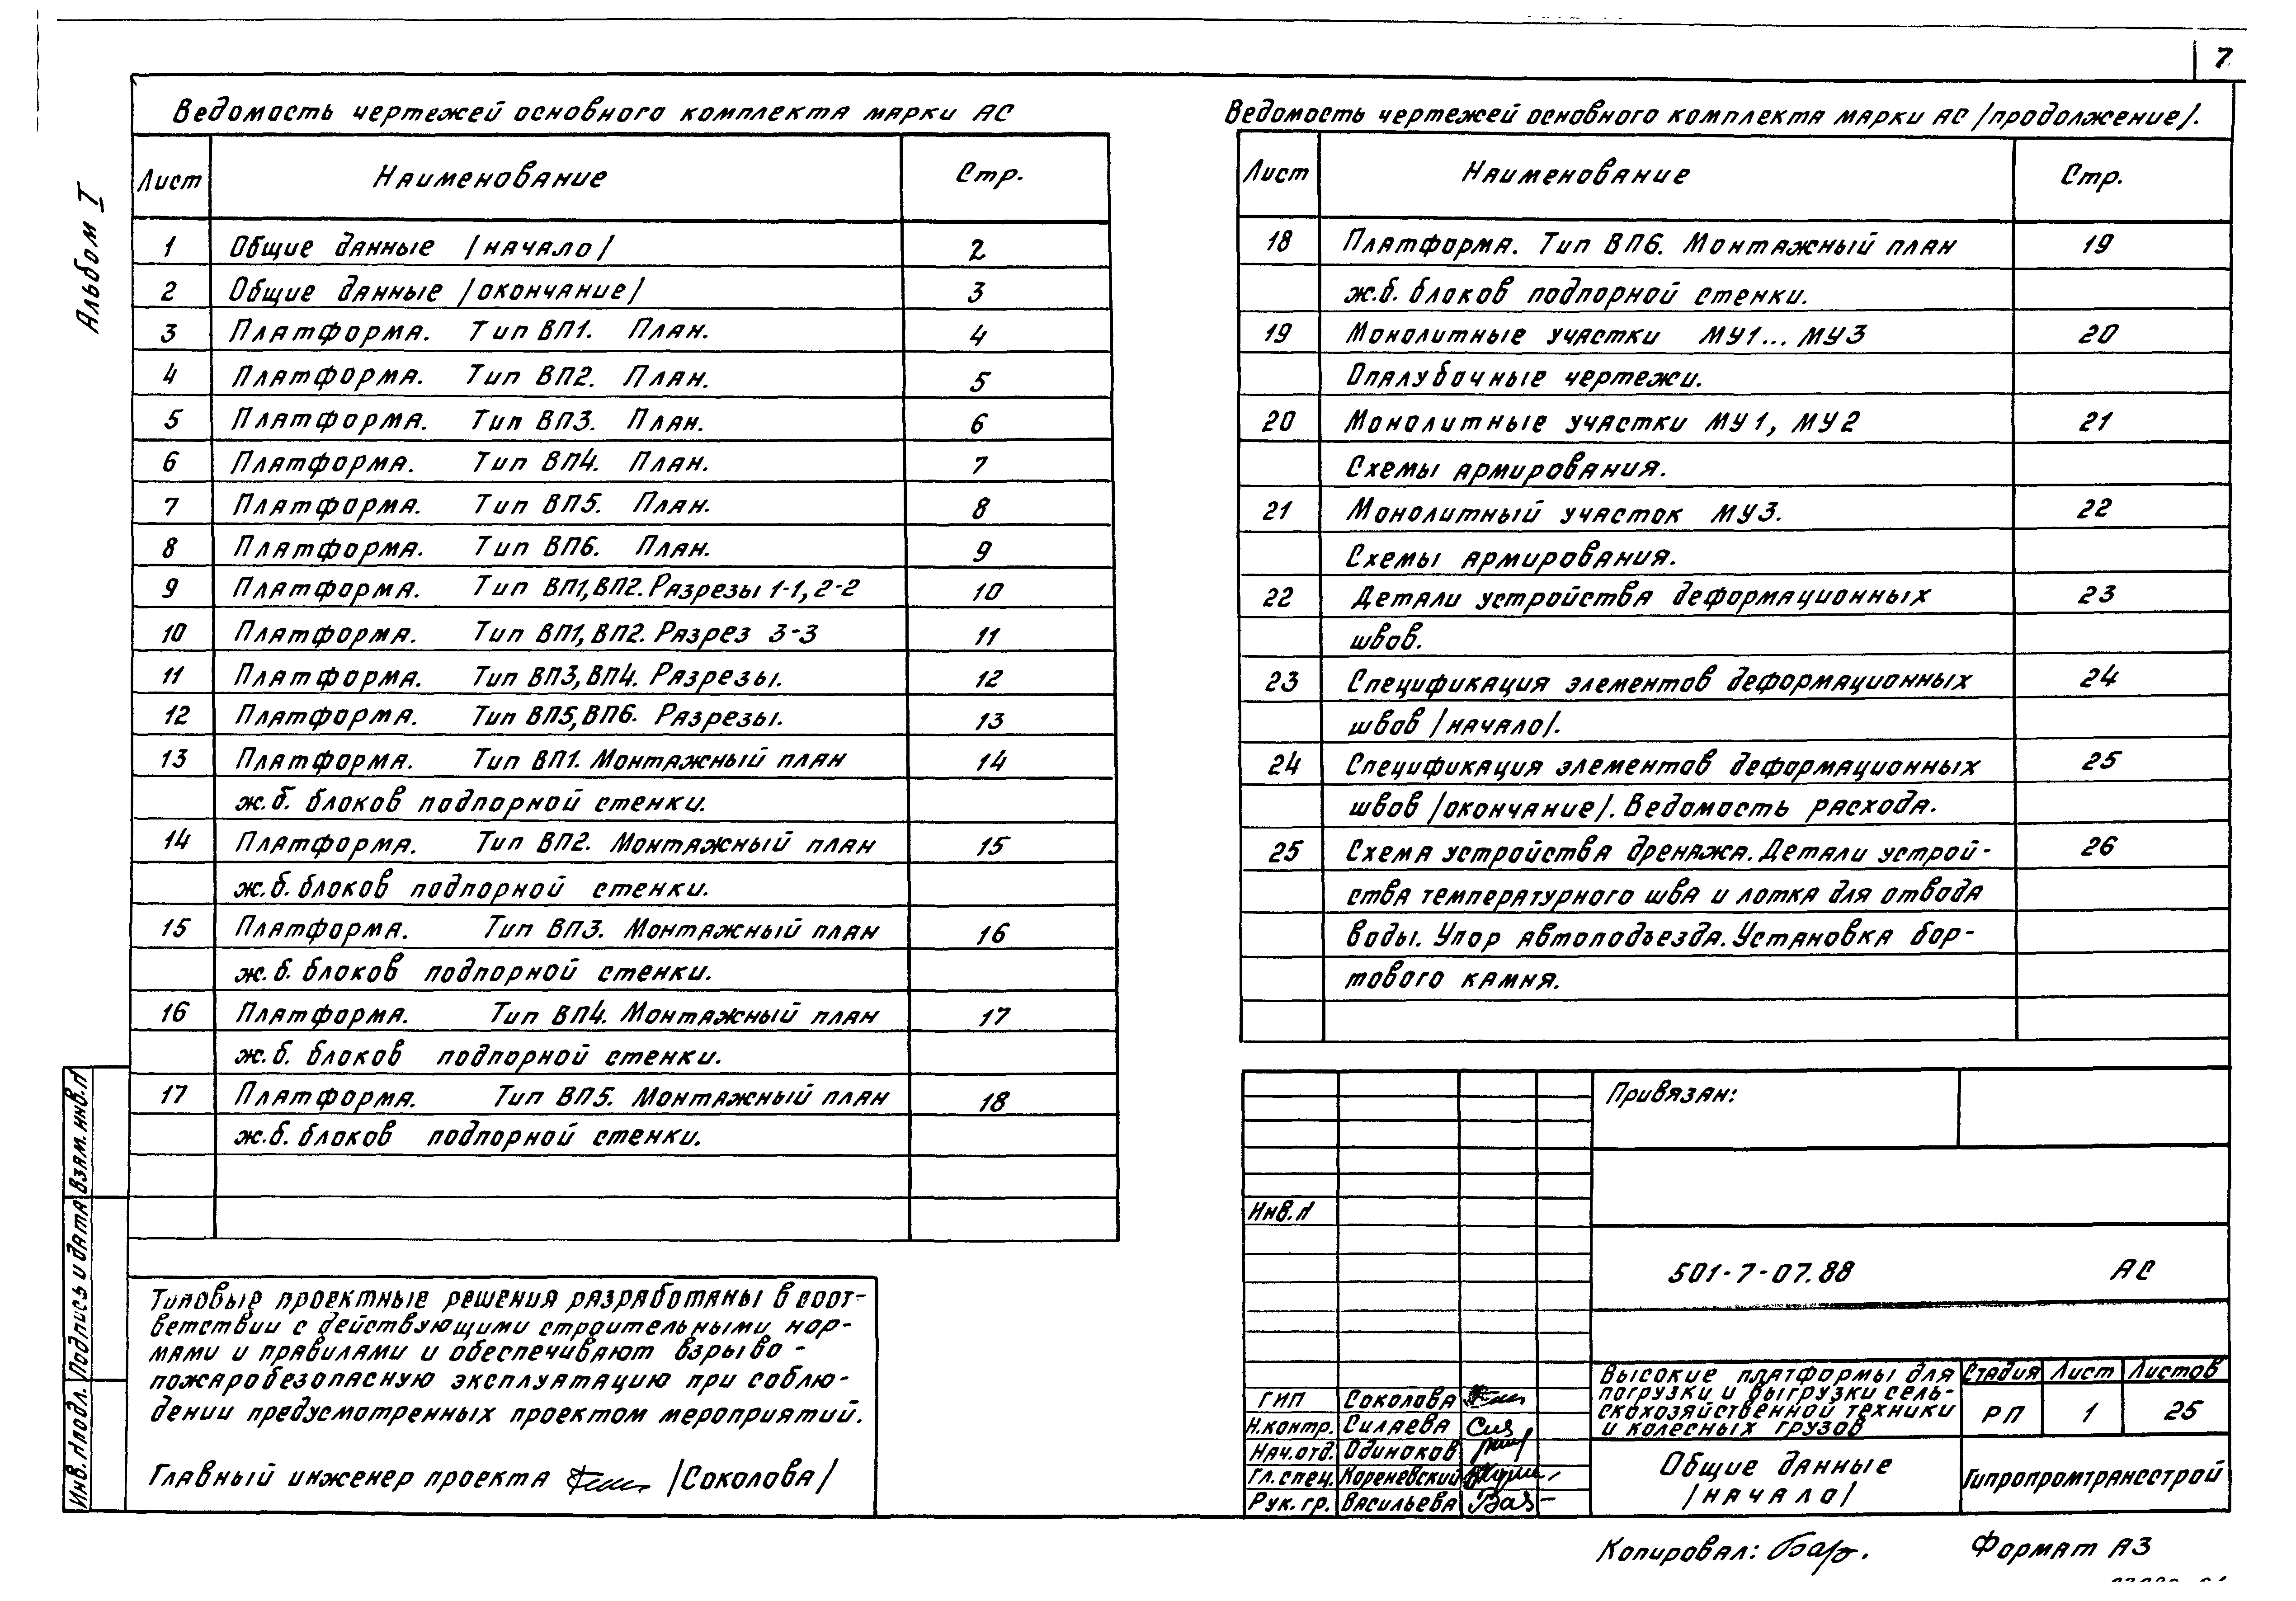 7
Альбом I
Ведомость чертежей основного комплекта марки АС
Лист Наименование Стр.
1 Общие данные /начало/ 2
2 Общие данные /окончание/ 3
3 Платформа. Тип ВП1. План. 4
4 Платформа. Тип ВП2. План. 5
5 Платформа. Тип ВП3. План. 6
6 Платформа. Тип ВП4. План. 7
7 Платформа. Тип ВП5. План. 8
8 Платформа. Тип ВП6. План. 9
9 Платформа. Тип ВП1, ВП2. Разрезы 1-1, 2-2 10
10 Платформа. Тип ВП1, ВП2. Разрез 3-3 11
11 Платформа. Тип ВП3, ВП4. Разрезы. 12
12 Платформа. Тип ВП5, ВП6. Разрезы. 13
13 Платформа. Тип ВП1. Монтажный план 14
ж.б. блоков подпорной стенки.
14 Платформа. Тип ВП2. Монтажный план 15
ж.б. блоков подпорной стенки.
15 Платформа. Тип ВП3. Монтажный план 16
ж.б. блоков подпорной стенки.
16 Платформа. Тип ВП4. Монтажный план 17
ж.б. блоков подпорной стенки.
17 Платформа. Тип ВП5. Монтажный план 18
ж.б. блоков подпорной стенки.
Ведомость чертежей основного комплекта марки АС /продолжение/.
Лист Наименование Стр.
18 Платформа. Тип ВП6. Монтажный план 19
ж.б. блоков подпорной стенки.
19 Монолитные участки МУ1... МУ3 20
Опалубочные чертежи.
20 Монолитные участки МУ1, МУ2 21
Схемы армирования.
21 Монолитный участок МУ3. 22
Схемы армирования.
22 Детали устройства деформационных 23
швов.
23 Спецификация элементов деформационных 24
швов /начало/.
24 Спецификация элементов деформационных 25
швов /окончание/. Ведомость расхода.
25 Схема устройства дренажа. Детали устрой- 26
ства температурного шва и лотка для отвода
воды. Упор автоподъезда. Установка бор-
тового камня.
Типовые проектные решения разработаны в соот-
ветствии с действующими строительными нор-
мами и правилами и обеспечивают взрыво-
пожаробезопасную эксплуатацию при соблю-
дении предусмотренных проектом мероприятий.
Главный инженер проекта /Соколова/
Взам. инв. №
Подпись и дата
Инв. № подл.
Привязан:
Инв. №
501-7-07.88 АС
ГИП Соколова
Н.контр. Силаева
Нач.отд. Одиноков
Гл.спец. Кореневский
Рук. гр. Васильева
Высокие платформы для
погрузки и выгрузки сель-
скохозяйственной техники
и колесных грузов
Стадия Лист Листов
РП 1 25
Общие данные
/начало/
Гипропромтрансстрой
Копировал:
Формат А3